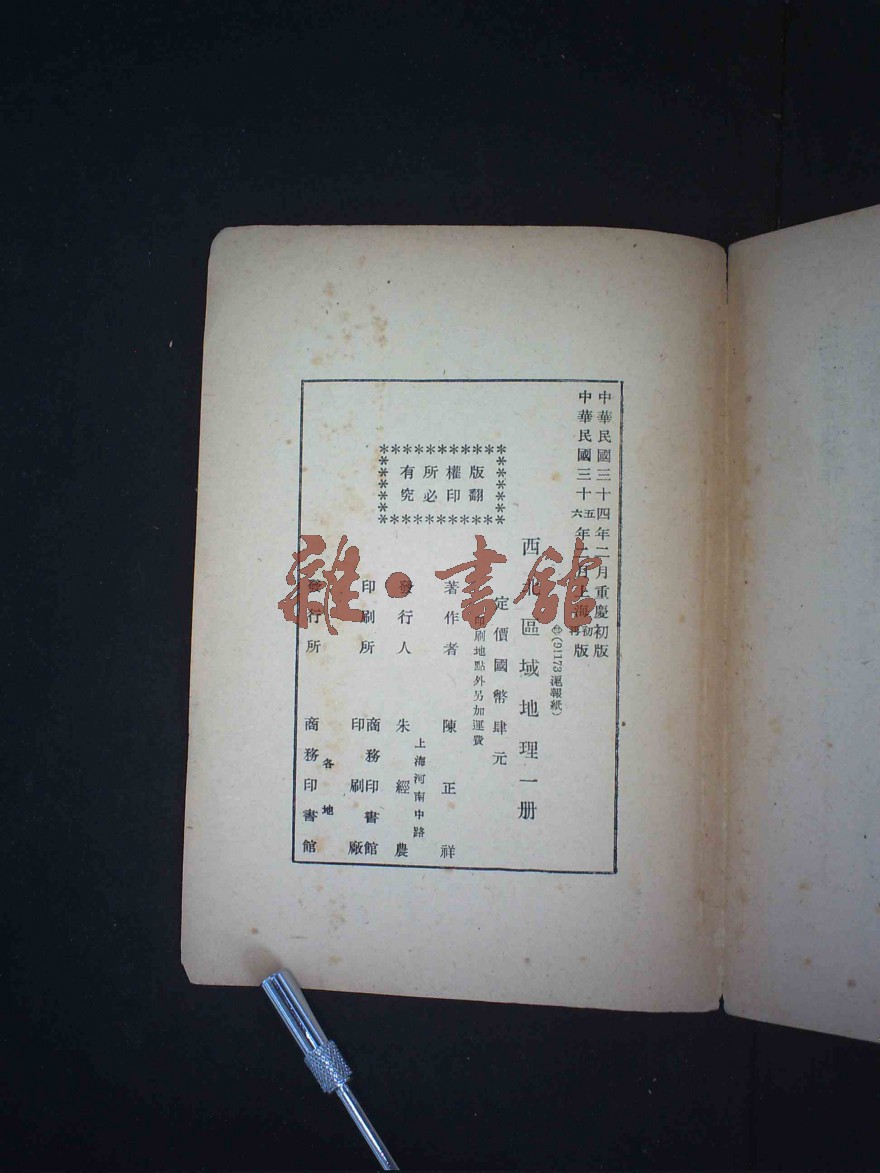 中華民國三十四年二月重慶初版
中華民國三十五六年二月上海初再版
㊣(91173滬報紙)
西北區域地理一册
定價國幣肆元
印刷地點外另加運費
版權所有
翻印必究
著作者 陳正祥
發行人 朱經農
上海河南中路
印刷所 商務印書館印刷廠
發行所 商務印書館
各地
雜·書館